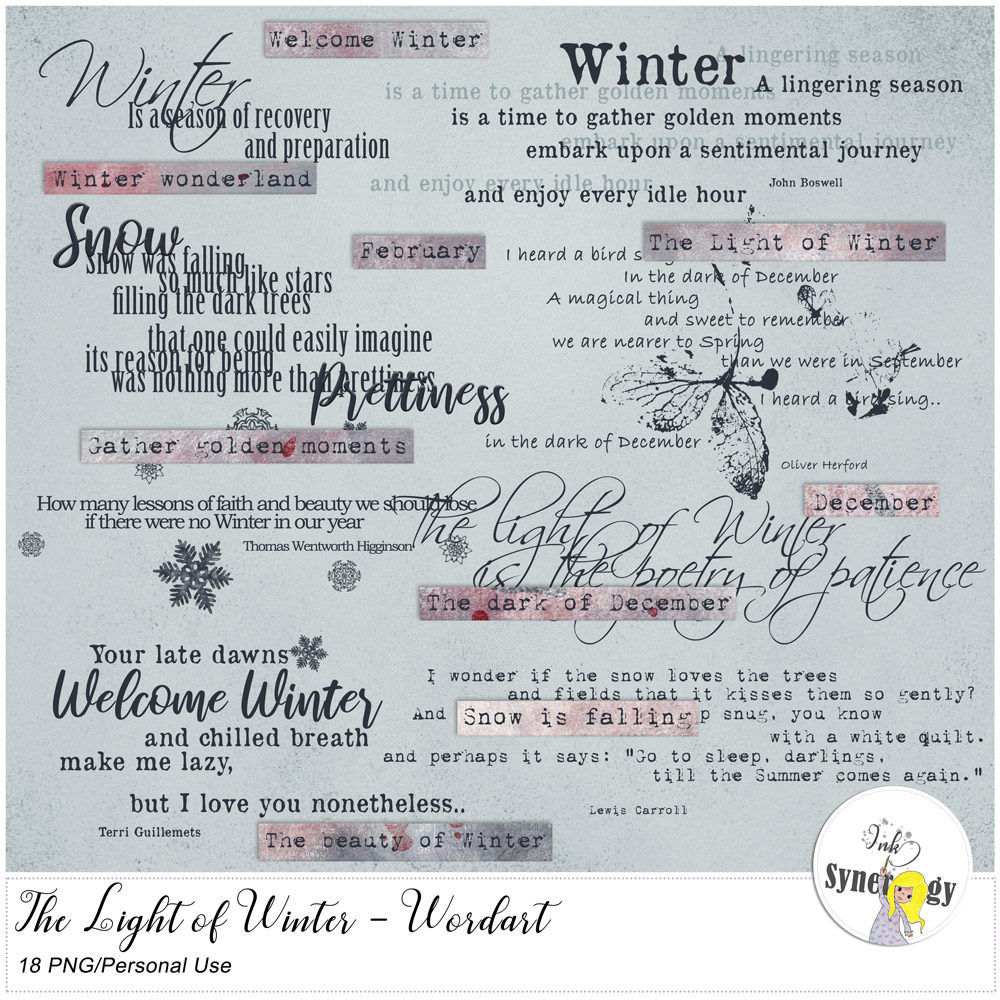 Welcome Winter
Winter
Is a season of recovery
and preparation
Winter wonderland
Winter
A lingering season
A lingering season
is a time to gather golden moments
is a time to gather golden moments
embark upon a sentimental journey
embark upon a sentimental journey
and enjoy every idle hour
and enjoy every idle hour
John Boswell
Snow
Snow was falling
so much like stars
filling the dark trees
that one could easily imagine
its reason for being
was nothing more than prettiness
Prettiness
February
The Light of Winter
I heard a bird
In the dark of December
A magical thing
and sweet to remember
we are nearer to Spring
than we were in September
I heard a bird sing..
in the dark of December
Oliver Herford
Gather golden moments
How many lessons of faith and beauty we should lose
if there were no Winter in our year
Thomas Wentworth Higginson
December
The light of Winter
is the poetry of patience
The dark of December
Your late dawns
Welcome Winter
and chilled breath
make me lazy,
but I love you nonetheless..
Terri Guillemets
I wonder if the snow loves the trees
and fields that it kisses them so gently?
And
Snow is falling
p snug, you know
with a white quilt.
and perhaps it says: "Go to sleep, darlings,
till the Summer comes again."
Lewis Carroll
The beauty of Winter
Ink
Synergy
The Light of Winter - Wordart
18 PNG/Personal Use